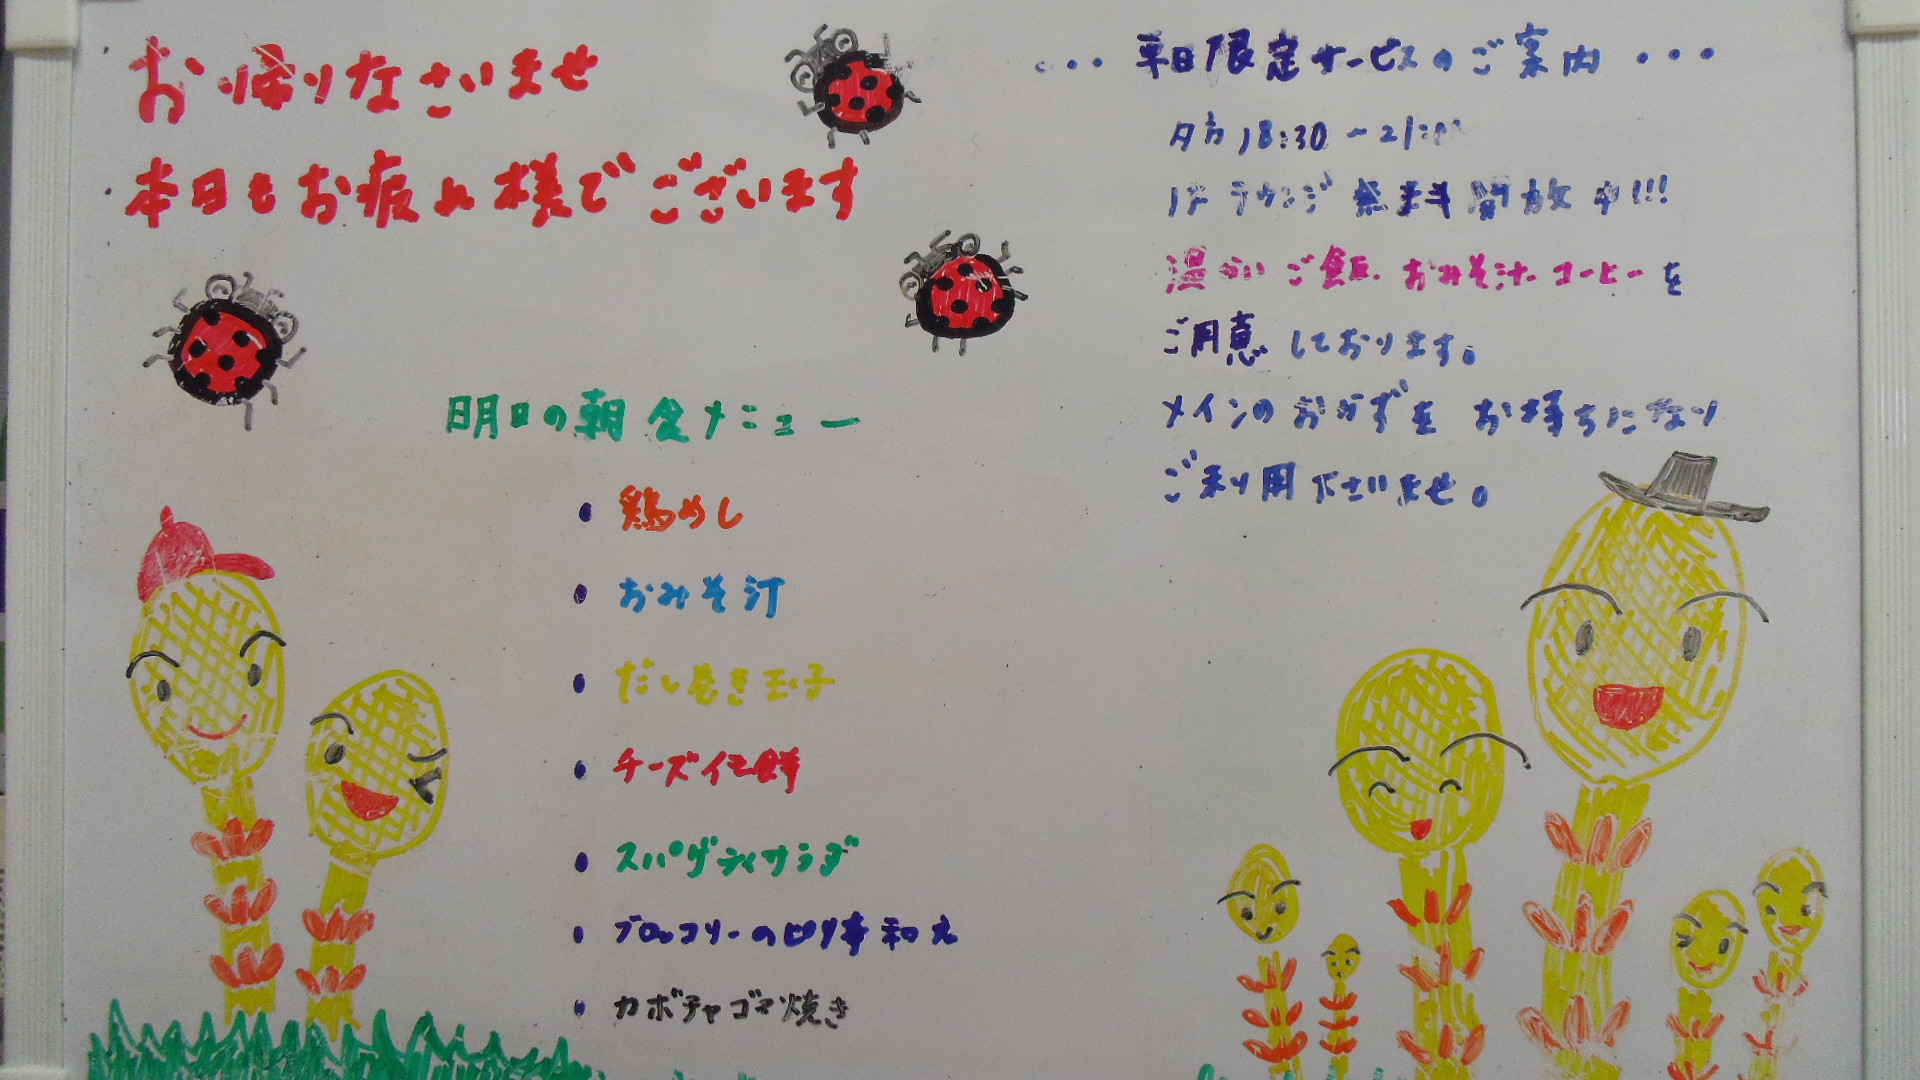 お帰りなさいませ
本日もお疲れ様でございます
明日の朝食メニュー
・鶏めし
・おみそ汁
・だし巻き玉子
・チーズイモ餅
・スパゲティサラダ
・ブロッコリーの和え
・カボチャゴマ焼き
・・・平日限定サービスのご案内・・・
夕方18:30~21:
1F ラウンジ 無料開放中!!!
温かいご飯、おみそ汁、コーヒーを
ご用意しております。
メインのおかずをお持ちになり
ご利用下さいませ。